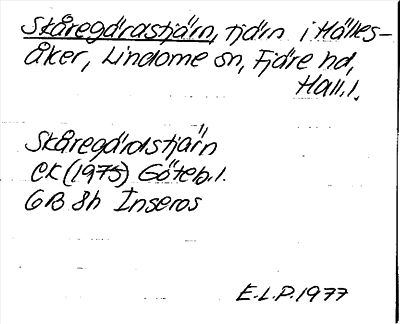 Skåregärdstjärn, tjärn i Hälles-
åker, Lindome sn, Fjäre hd,
Hall.l.
Skåregärdstjärn
EK (1975) Göteb.l.
6B 8h Inseros
E.L.P. 1977